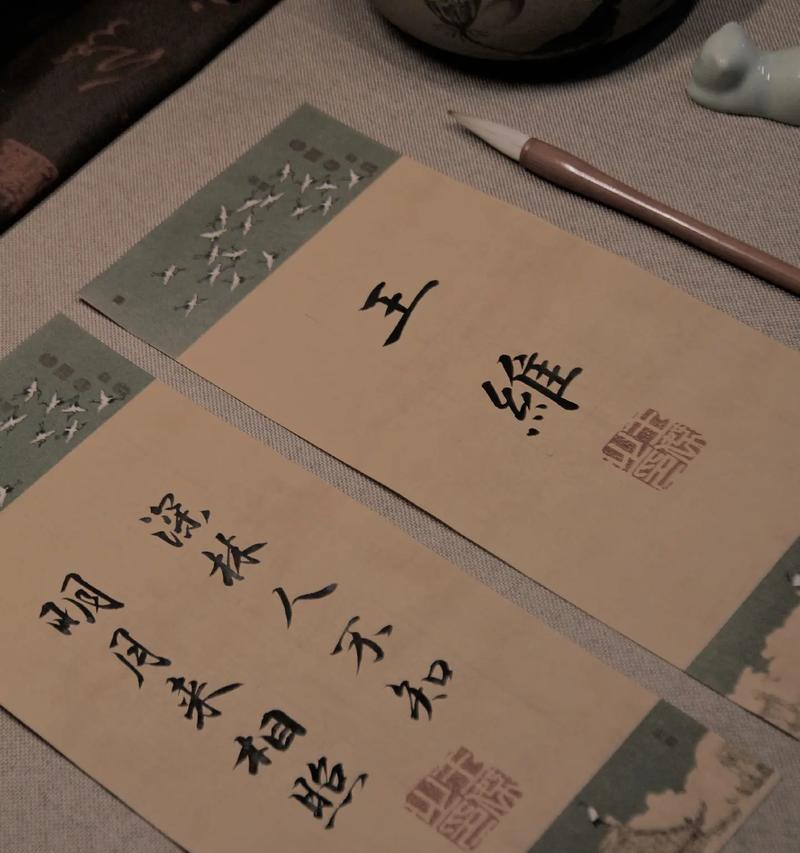 王維
深林人不知
明月来相照